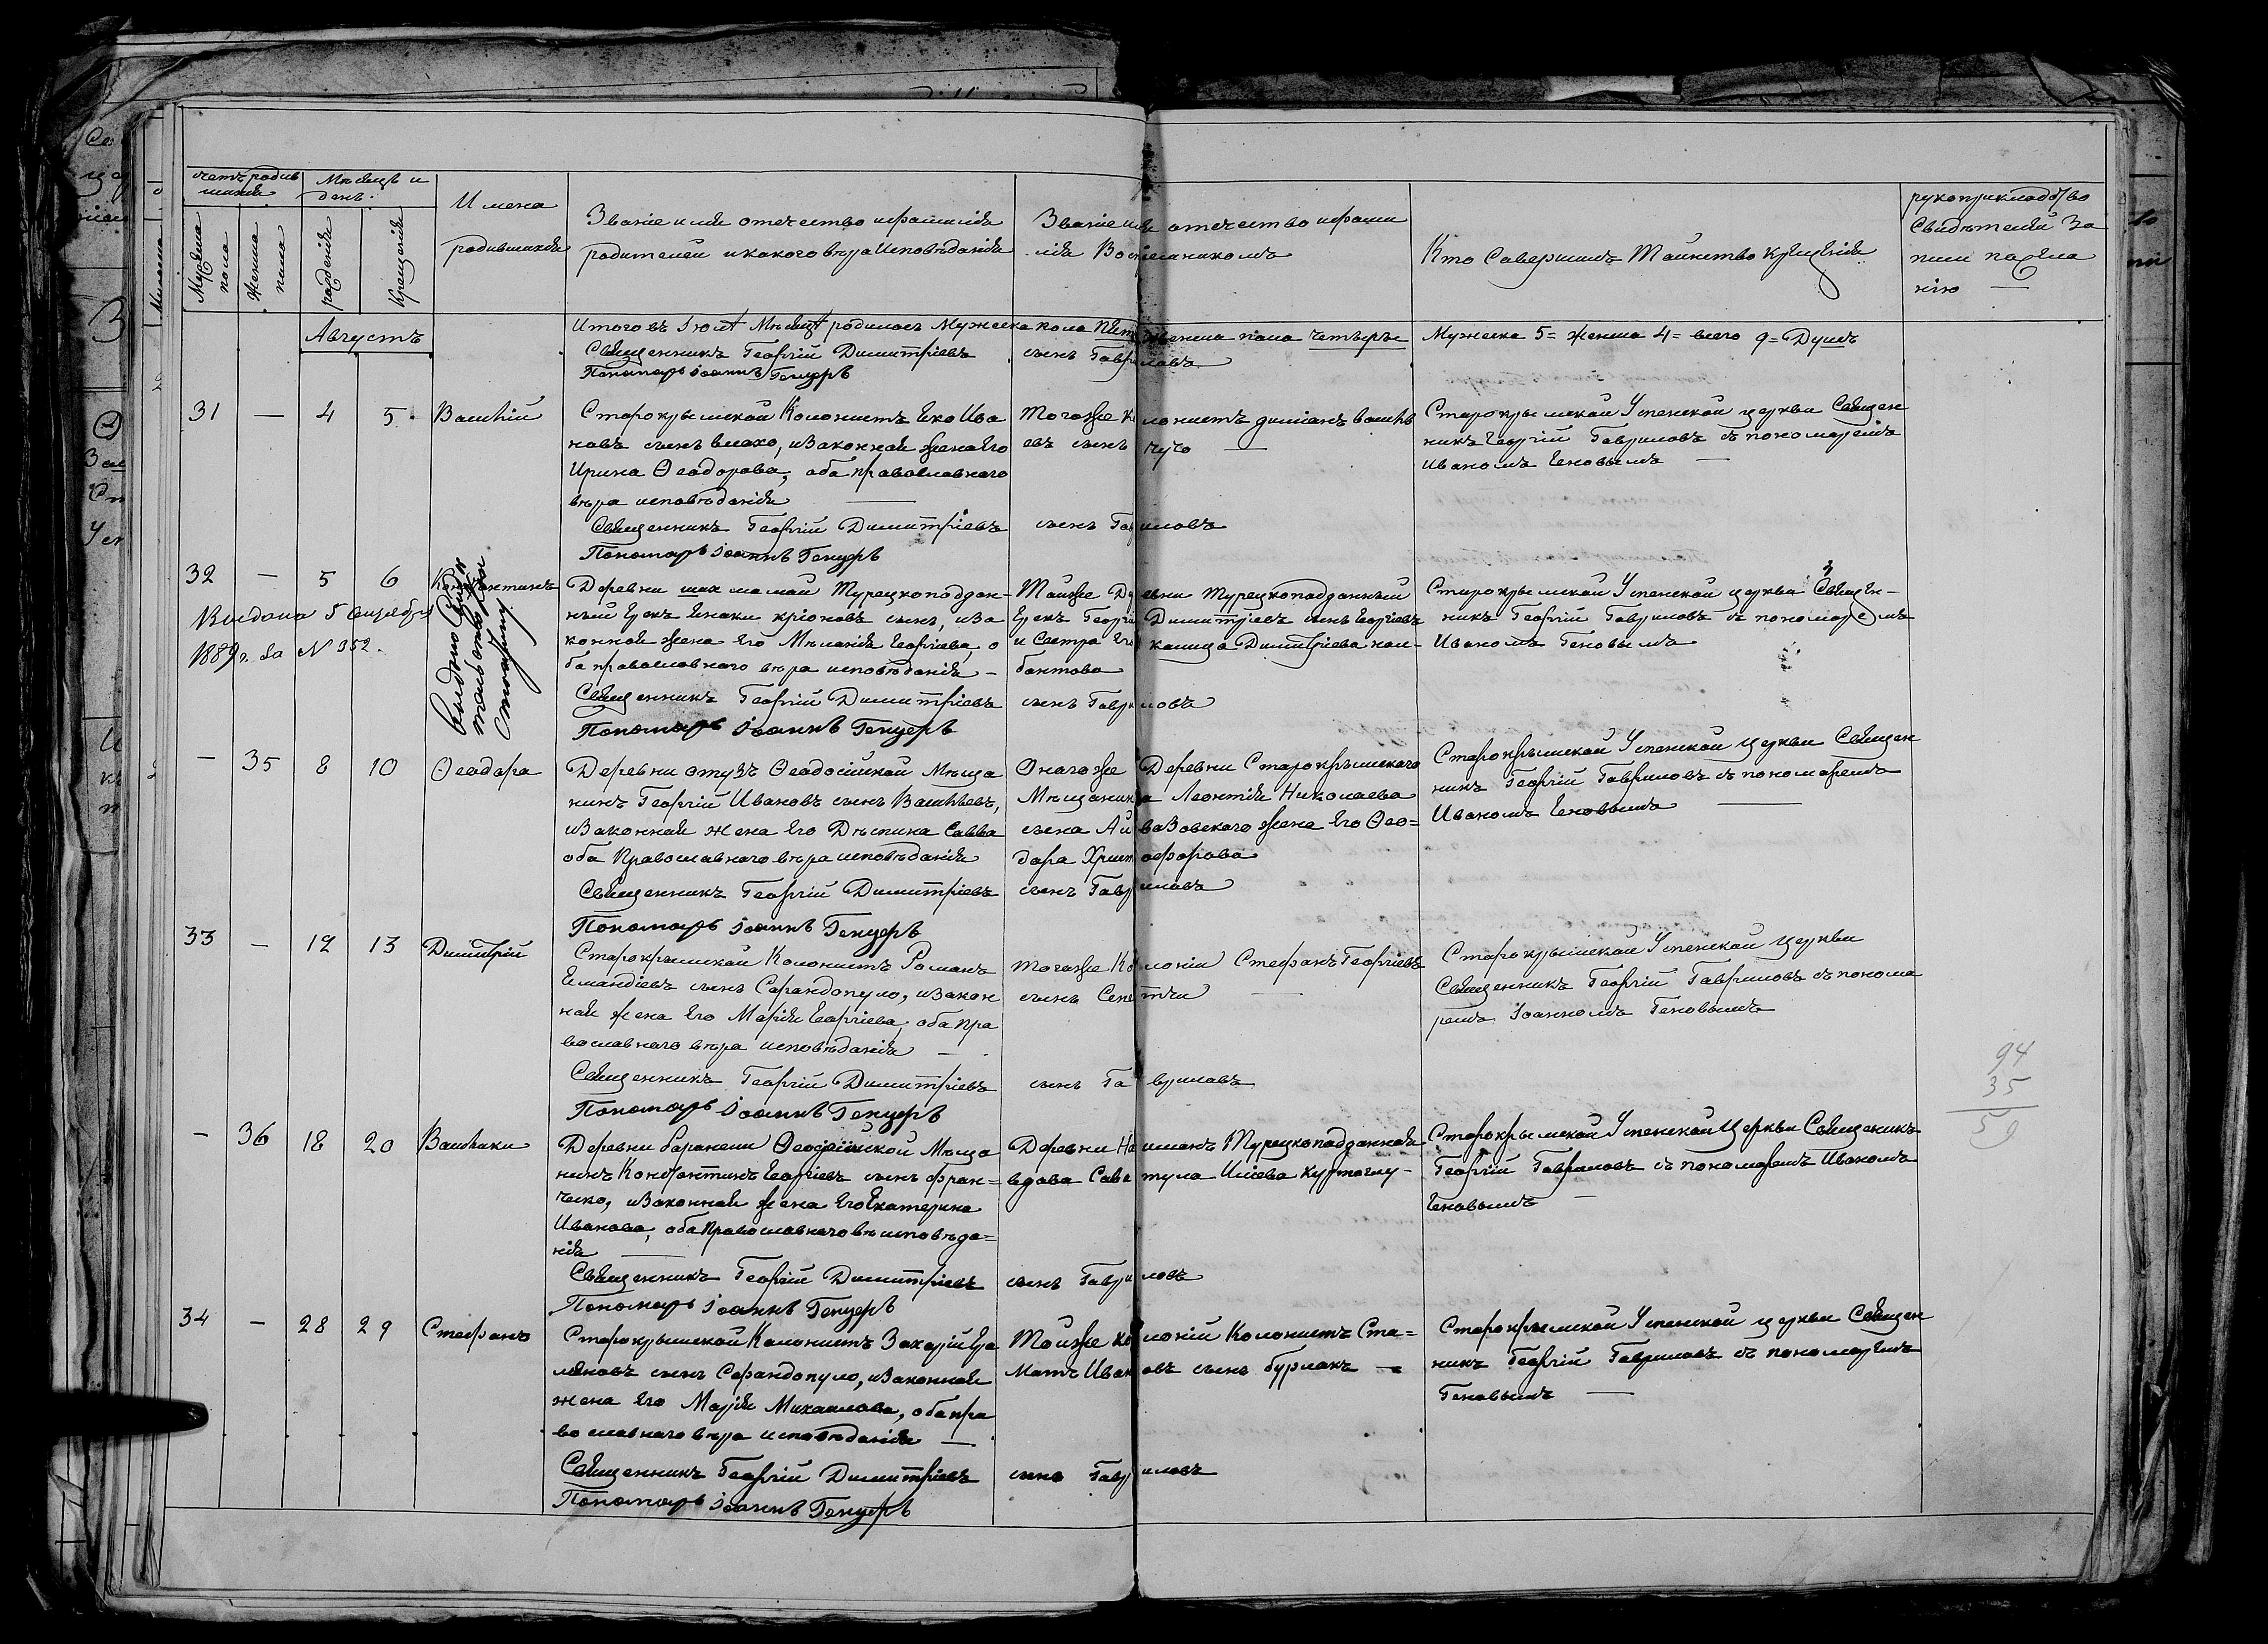 счетъ родив
шихся
Мѣсяцъ и
день.
Мужеска
пола
Женска
пола
рожденія
Крещенія
Имена
родившихся
Званіе имя отечество и фамилія
родителей и какого вѣра Исповѣданія
Званіе имя отечество и фами
лія Воспріемникомъ
Кто Совершилъ Таинство Крещенія
рукоприкладство
Свидѣтелей За
писи по Жела
нію —
Августъ
Итого въ Іюлѣ Мѣсяцѣ родилось Мужеска пола пять женска пола четыре
Мужеска 5 = женска 4 = всего 9 = Душъ
Священникъ Георгій Димитріевъ сынъ Гавриловъ
Пономарь Іоаннъ Генуеръ
31 — 4 5 Василій
Старокрымской Колонистъ Еко Ива
новъ сынъ Влахо, и законная жена его
Ирина Ѳеодорова, оба православнаго
вѣра исповѣданія —
Тогоже колонистъ диміанъ василь
евъ сынъ Чучо —
Старокрымской Успенской церкви Священ
никъ Георгій Гавриловъ съ пономаремъ
Иваномъ Геновымъ —
Священникъ Георгій Димитріевъ сынъ Гавриловъ
Пономарь Іоаннъ Генуеръ
32 — 5 6 Константинъ
Выдана 5
1889 г. за № 352.
Выдано
Деревни шах мамай Турецкоподдан-
ный Грекъ кріоновъ сынъ, и за
конная жена его Меланія Георгіева, о
ба православнаго вѣра исповѣданія —
Тойже Деревни Турецкоподданный
Грекъ Георгій Димитріевъ сынъ Георгіевъ
и Сестра его Димитріева
Старокрымской Успенской церкви Священ-
никъ Георгій Гавриловъ съ пономаремъ
Иваномъ Геновымъ
Священникъ Георгій Димитріевъ сынъ Гавриловъ
Пономарь Іоаннъ Генуеръ
— 35 8 10 Ѳеодора
Деревни Отузъ Ѳеодосійской Мѣща
нинъ Георгій Ивановъ сынъ Васильевъ,
и законная жена его Деспина Савва
оба Православнаго вѣра исповѣданія
Онагоже Деревни Старокрымскаго
Мѣщанина Леонтія Николаева
сына Айвазовскаго жена его Ѳео=
дора Христофорова
Старокрымской Успенской церкви Священ
никъ Георгій Гавриловъ съ пономаремъ
Иваномъ Геновымъ —
Священникъ Георгій Димитріевъ сынъ Гавриловъ
Пономарь Іоаннъ Генуеръ
33 — 12 13 Димитрій
Старокрымской Колонистъ Романъ
сынъ Сарандопуло, и закон
ная жена его Марія Георгіева, оба пра
вославнаго вѣра исповѣданія —
тогоже Колоніи Стефанъ Георгіевъ
сынъ —
Старокрымской Успенской церкви
Священникъ Георгій Гавриловъ съ понома
ремъ Іоанномъ Геновымъ
Священникъ Георгій Димитріевъ сынъ Гавриловъ
Пономарь Іоаннъ Генуеръ
94
35
59
— 36 18 20 Василики
Деревни Баракели Ѳеодосійской Мѣща
нинъ Константинъ Георгіевъ сынъ Фран=
ческо, и законная жена его Екатерина
Иванова, оба Православнаго вѣ исповѣда=
нія —
Деревни Найманъ Турецкоподданная
вдова Илієва Куртоглу —
Старокрымской Успенской Церкви Священикъ
Георгій Гавриловъ съ пономаремъ Иваномъ
Геновымъ —
Священникъ Георгій Димитріевъ сынъ Гавриловъ
Пономарь Іоаннъ Генуеръ
34 — 28 29 Стефанъ
Старокрымской Колонистъ Захарій
сынъ Сарандопуло, и законная
жена его Марія Михаилова, оба пра
вославнаго вѣра исповѣданія —
Тойже колоній Колонистъ Ста=
матъ Ивановъ сынъ Бурлакъ —
Старокрымской Успенской церкви Священ
никъ Георгій Гавриловъ съ пономаремъ
Геновымъ —
Священникъ Георгій Димитріевъ сынъ Гавриловъ
Пономарь Іоаннъ Генуеръ